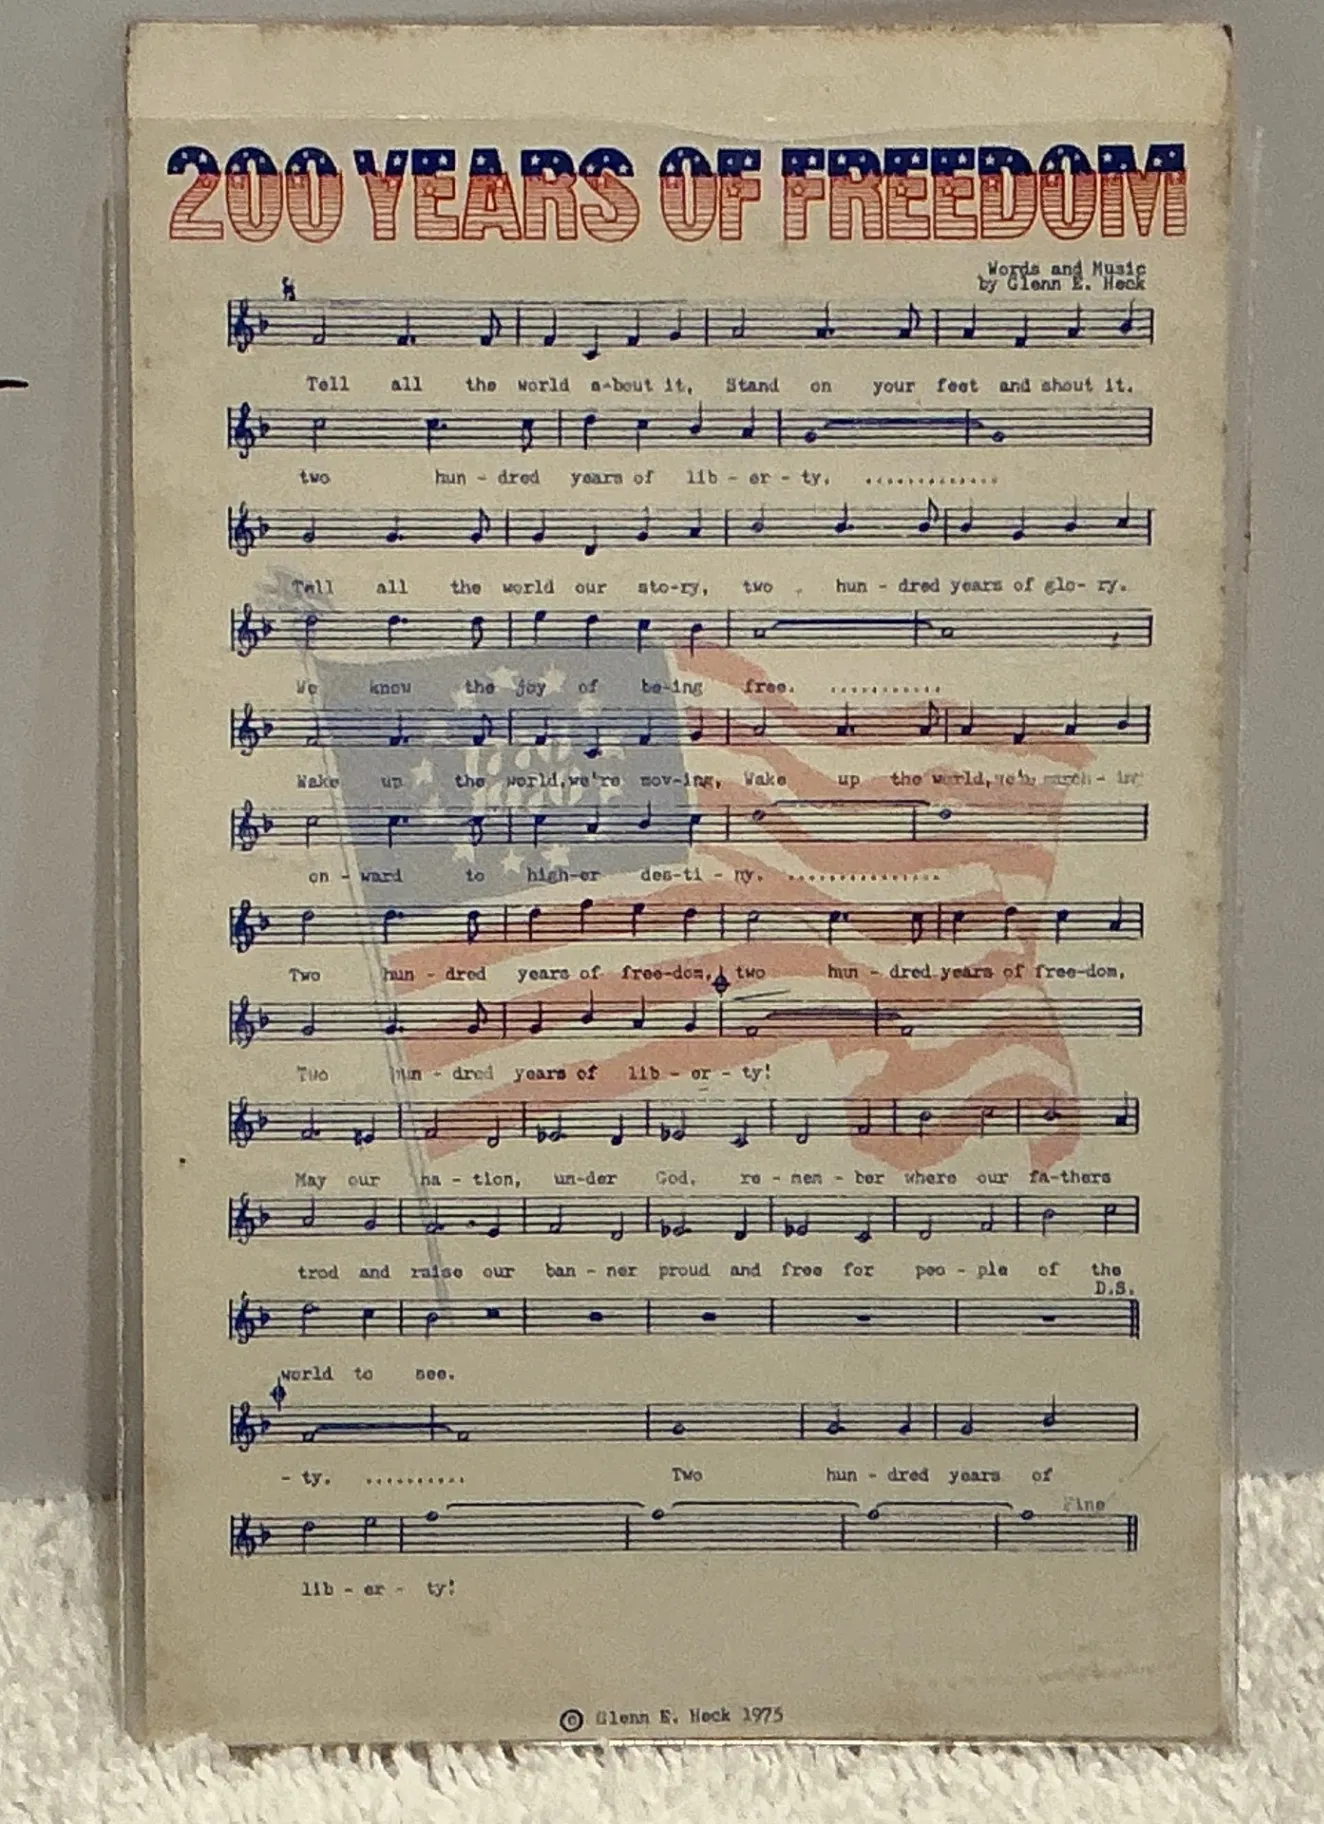 200 YEARS OF FREEDOM
Words and Music
by Glenn E. Heck
Tell all the world a-bout it, Stand on your feet and shout it.
two hun - dred years of lib - er - ty. .............
Tell all the world our sto-ry, two hun - dred years of glo- ry.
We know the joy of be-ing free. ...........
Wake up the world,we're mov-ing, Wake up the world, march - in
on - ward to high-er des-ti - ny. ...............
Two hun - dred years of free-dom, two hun - dred years of free-dom,
Two hun - dred years of lib - er - ty!
May our na - tion, un-der God, re - mem - ber where our fa-thers
trod and raise our ban - ner proud and free for peo - ple of the
D.S.
world to see.
- ty. .......... Two hun - dred years of
Fine
lib - er - ty!
© Glenn E. Heck 1975